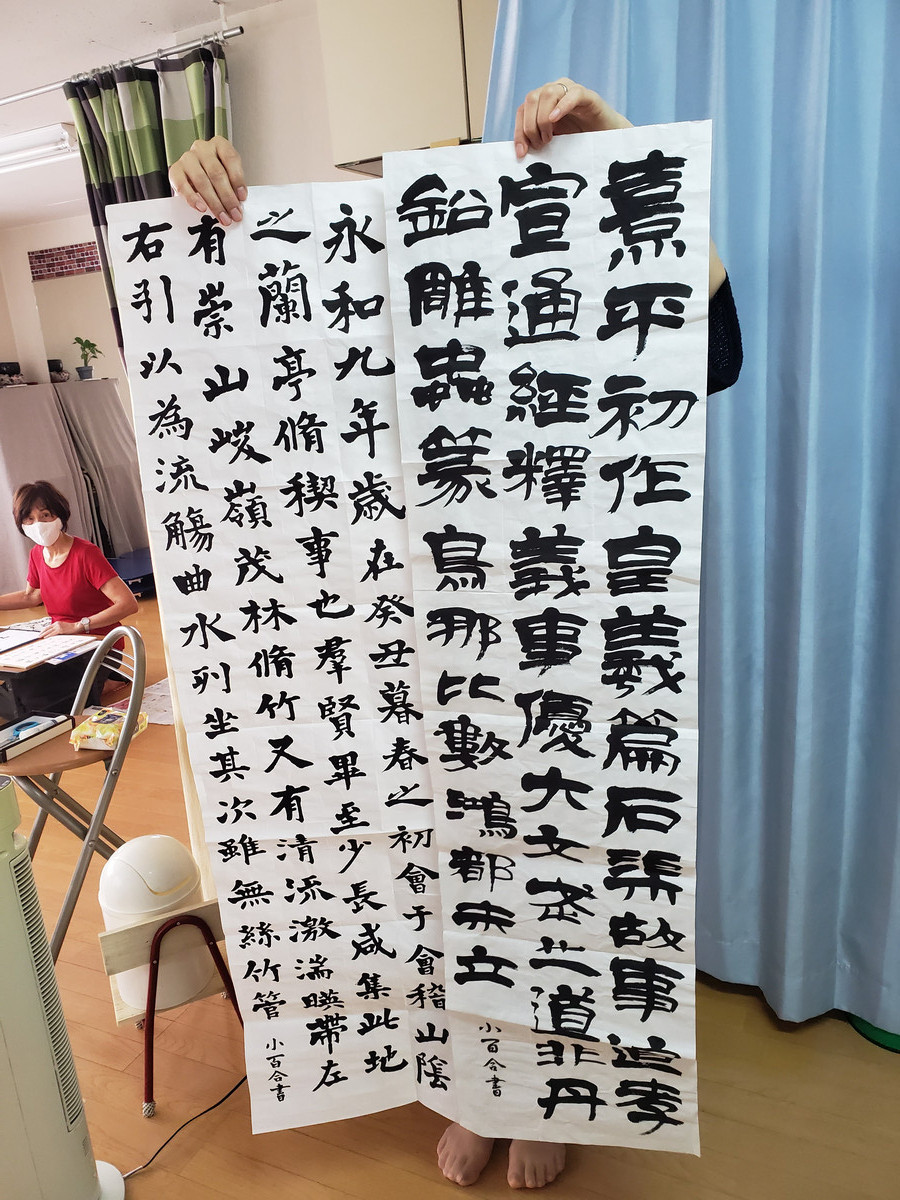 熹平初作皇羲篇石渠故事追孝
宣通經釋義事優大文武之道非丹
鉛雕蟲篆鳥那比數鴻都未立
小百合書
永和九年歳在癸丑暮春之初會于會稽山陰
之蘭亭脩稧事也羣賢畢至少長咸集此地
有崇山峻嶺茂林脩竹又有清流激湍暎帶左
右引以為流觴曲水列坐其次雖無絲竹管
小百合書